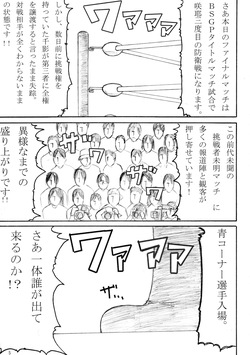 さあ本日のファイナルマッチは
BSGPタイトルマッチ試合で
咲耶三度目の防衛戦になります。
しかし、数日前に挑戦権を
持っていた千影が第三者に全権
を譲渡すると言ったまま失踪。
対戦相手が全くわからないまま
の状態です!!
ワァァァ
この前代未聞の
挑戦者未明マッチに
多くの報道陣と観客が
押し寄せています!
異様なまでの
盛り上がりです!!
ワァァァ
青コーナー選手入場。
ワァァァ
さあ一体誰が出て
来るのか?!